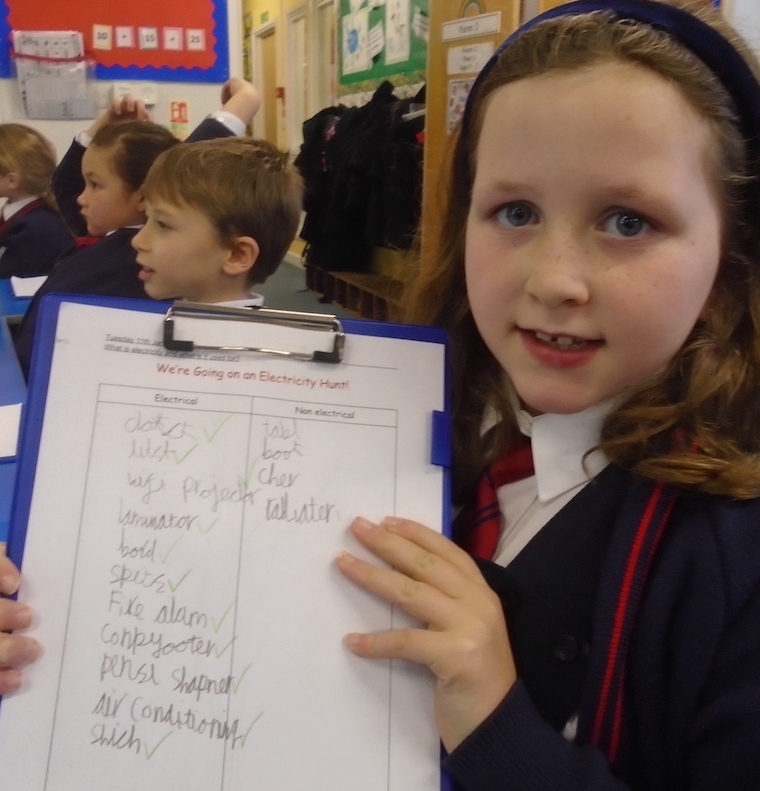 10 + 15 = 25
Form 2
Tuesday 11th Ja
What is electricity and what is it used for?
We're Going on an Electricity Hunt!
Electrical
Non electrical
tabl
boot
cher
wifi projector
ralliater
laminator
bord
Fire alam
conpyooter
pensl shapner
air conditioning
shich